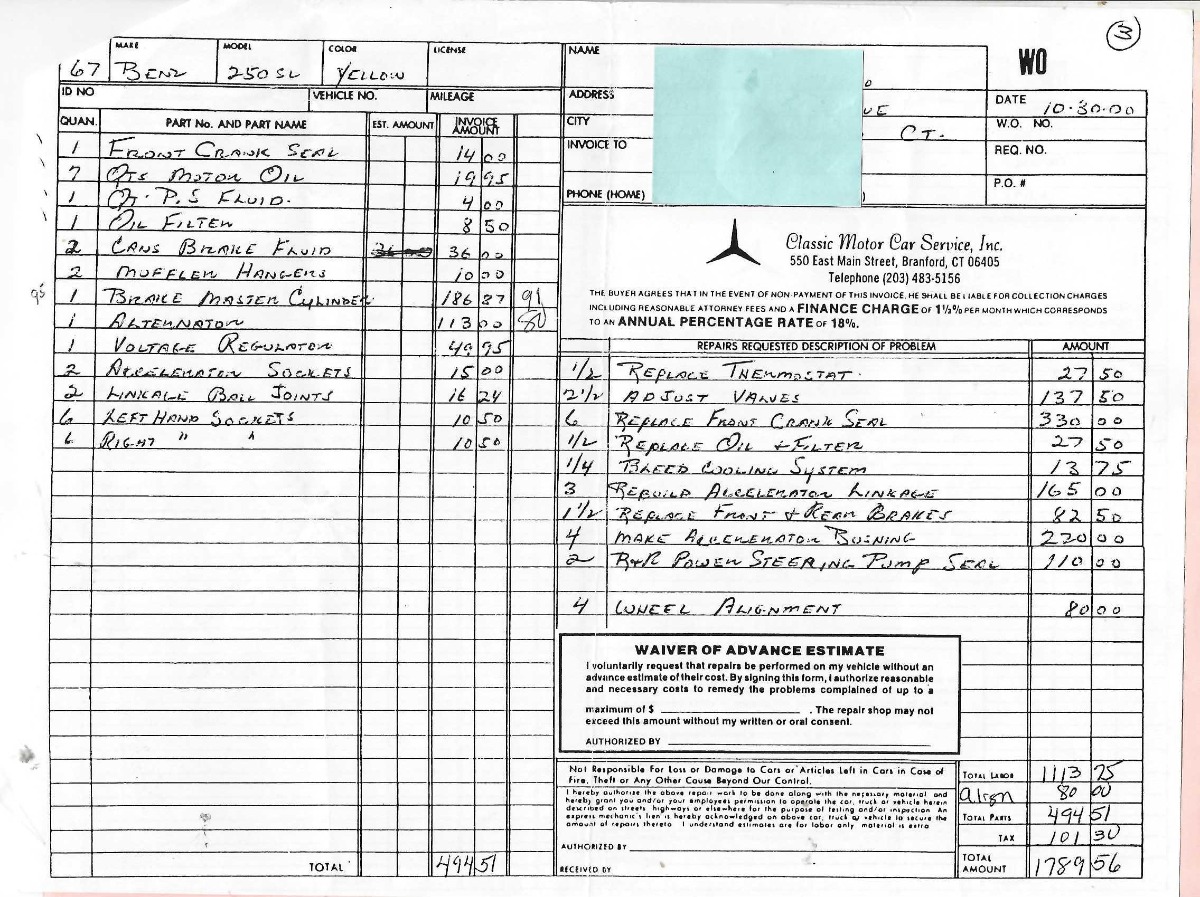 3
MAKE MODEL COLOR LICENSE NAME WO
67 BENZ 250 SL YELLOW
ID NO VEHICLE NO. MILEAGE ADDRESS UE DATE 10-30-00
QUAN. PART No. AND PART NAME EST. AMOUNT INVOICE AMOUNT CITY CT. W.O. NO.
INVOICE TO REQ. NO.
PHONE (HOME) P.O. #
1 FRONT CRANK SEAL 14 00
7 QTS MOTOR OIL 19 95
1 QT. P.S FLUID. 4 00
1 OIL FILTER 8 50
2 CANS BRAKE FLUID 36 00
2 MUFFLER HANGERS 10 00
1 BRAKE MASTER CYLINDER 186 87 91
1 ALTERNATOR 113 00 80
1 VOLTAGE REGULATOR 49 95
2 ACCELERATOR SOCKETS 15 00
2 LINKAGE BALL JOINTS 16 24
6 LEFT HAND SOCKETS 10 50
6 RIGHT " " 10 50
TOTAL 494 51
Classic Motor Car Service, Inc.
550 East Main Street, Branford, CT 06405
Telephone (203) 483-5156
THE BUYER AGREES THAT IN THE EVENT OF NON-PAYMENT OF THIS INVOICE, HE SHALL BE LIABLE FOR COLLECTION CHARGES
INCLUDING REASONABLE ATTORNEY FEES AND A FINANCE CHARGE OF 1½% PER MONTH WHICH CORRESPONDS
TO AN ANNUAL PERCENTAGE RATE OF 18%.
REPAIRS REQUESTED DESCRIPTION OF PROBLEM AMOUNT
1/2 REPLACE THERMOSTAT. 27 50
2 1/2 ADJUST VALVES 137 50
6 REPLACE FRONT CRANK SEAL 330 00
1/2 REPLACE OIL + FILTER 27 50
1/4 BLEED COOLING SYSTEM 13 75
3 REBUILD ACCELERATOR LINKAGE 165 00
1 1/2 REPLACE FRONT + REAR BRAKES 82 50
4 MAKE ACCELERATOR BUSHING 220 00
2 R+R POWER STEERING PUMP SEAL 110 00
4 WHEEL ALIGNMENT 80 00
WAIVER OF ADVANCE ESTIMATE
I voluntarily request that repairs be performed on my vehicle without an
advance estimate of their cost. By signing this form, I authorize reasonable
and necessary costs to remedy the problems complained of up to a
maximum of $ . The repair shop may not
exceed this amount without my written or oral consent.
AUTHORIZED BY
Not Responsible For Loss or Damage to Cars or Articles Left in Cars in Case of
Fire, Theft or Any Other Cause Beyond Our Control.
I hereby authorize the above repair work to be done along with the necessary material and
hereby grant you and/or your employees permission to operate the car, truck or vehicle herein
described on streets, highways or elsewhere for the purpose of testing and/or inspection. An
express mechanic's lien is hereby acknowledged on above car, truck or vehicle to secure the
amount of repairs thereto. I understand estimates are for labor only material is extra
AUTHORIZED BY
RECEIVED BY
TOTAL LABOR 1113 75
align 80 00
TOTAL PARTS 494 51
TAX 101 30
TOTAL AMOUNT 1789 56